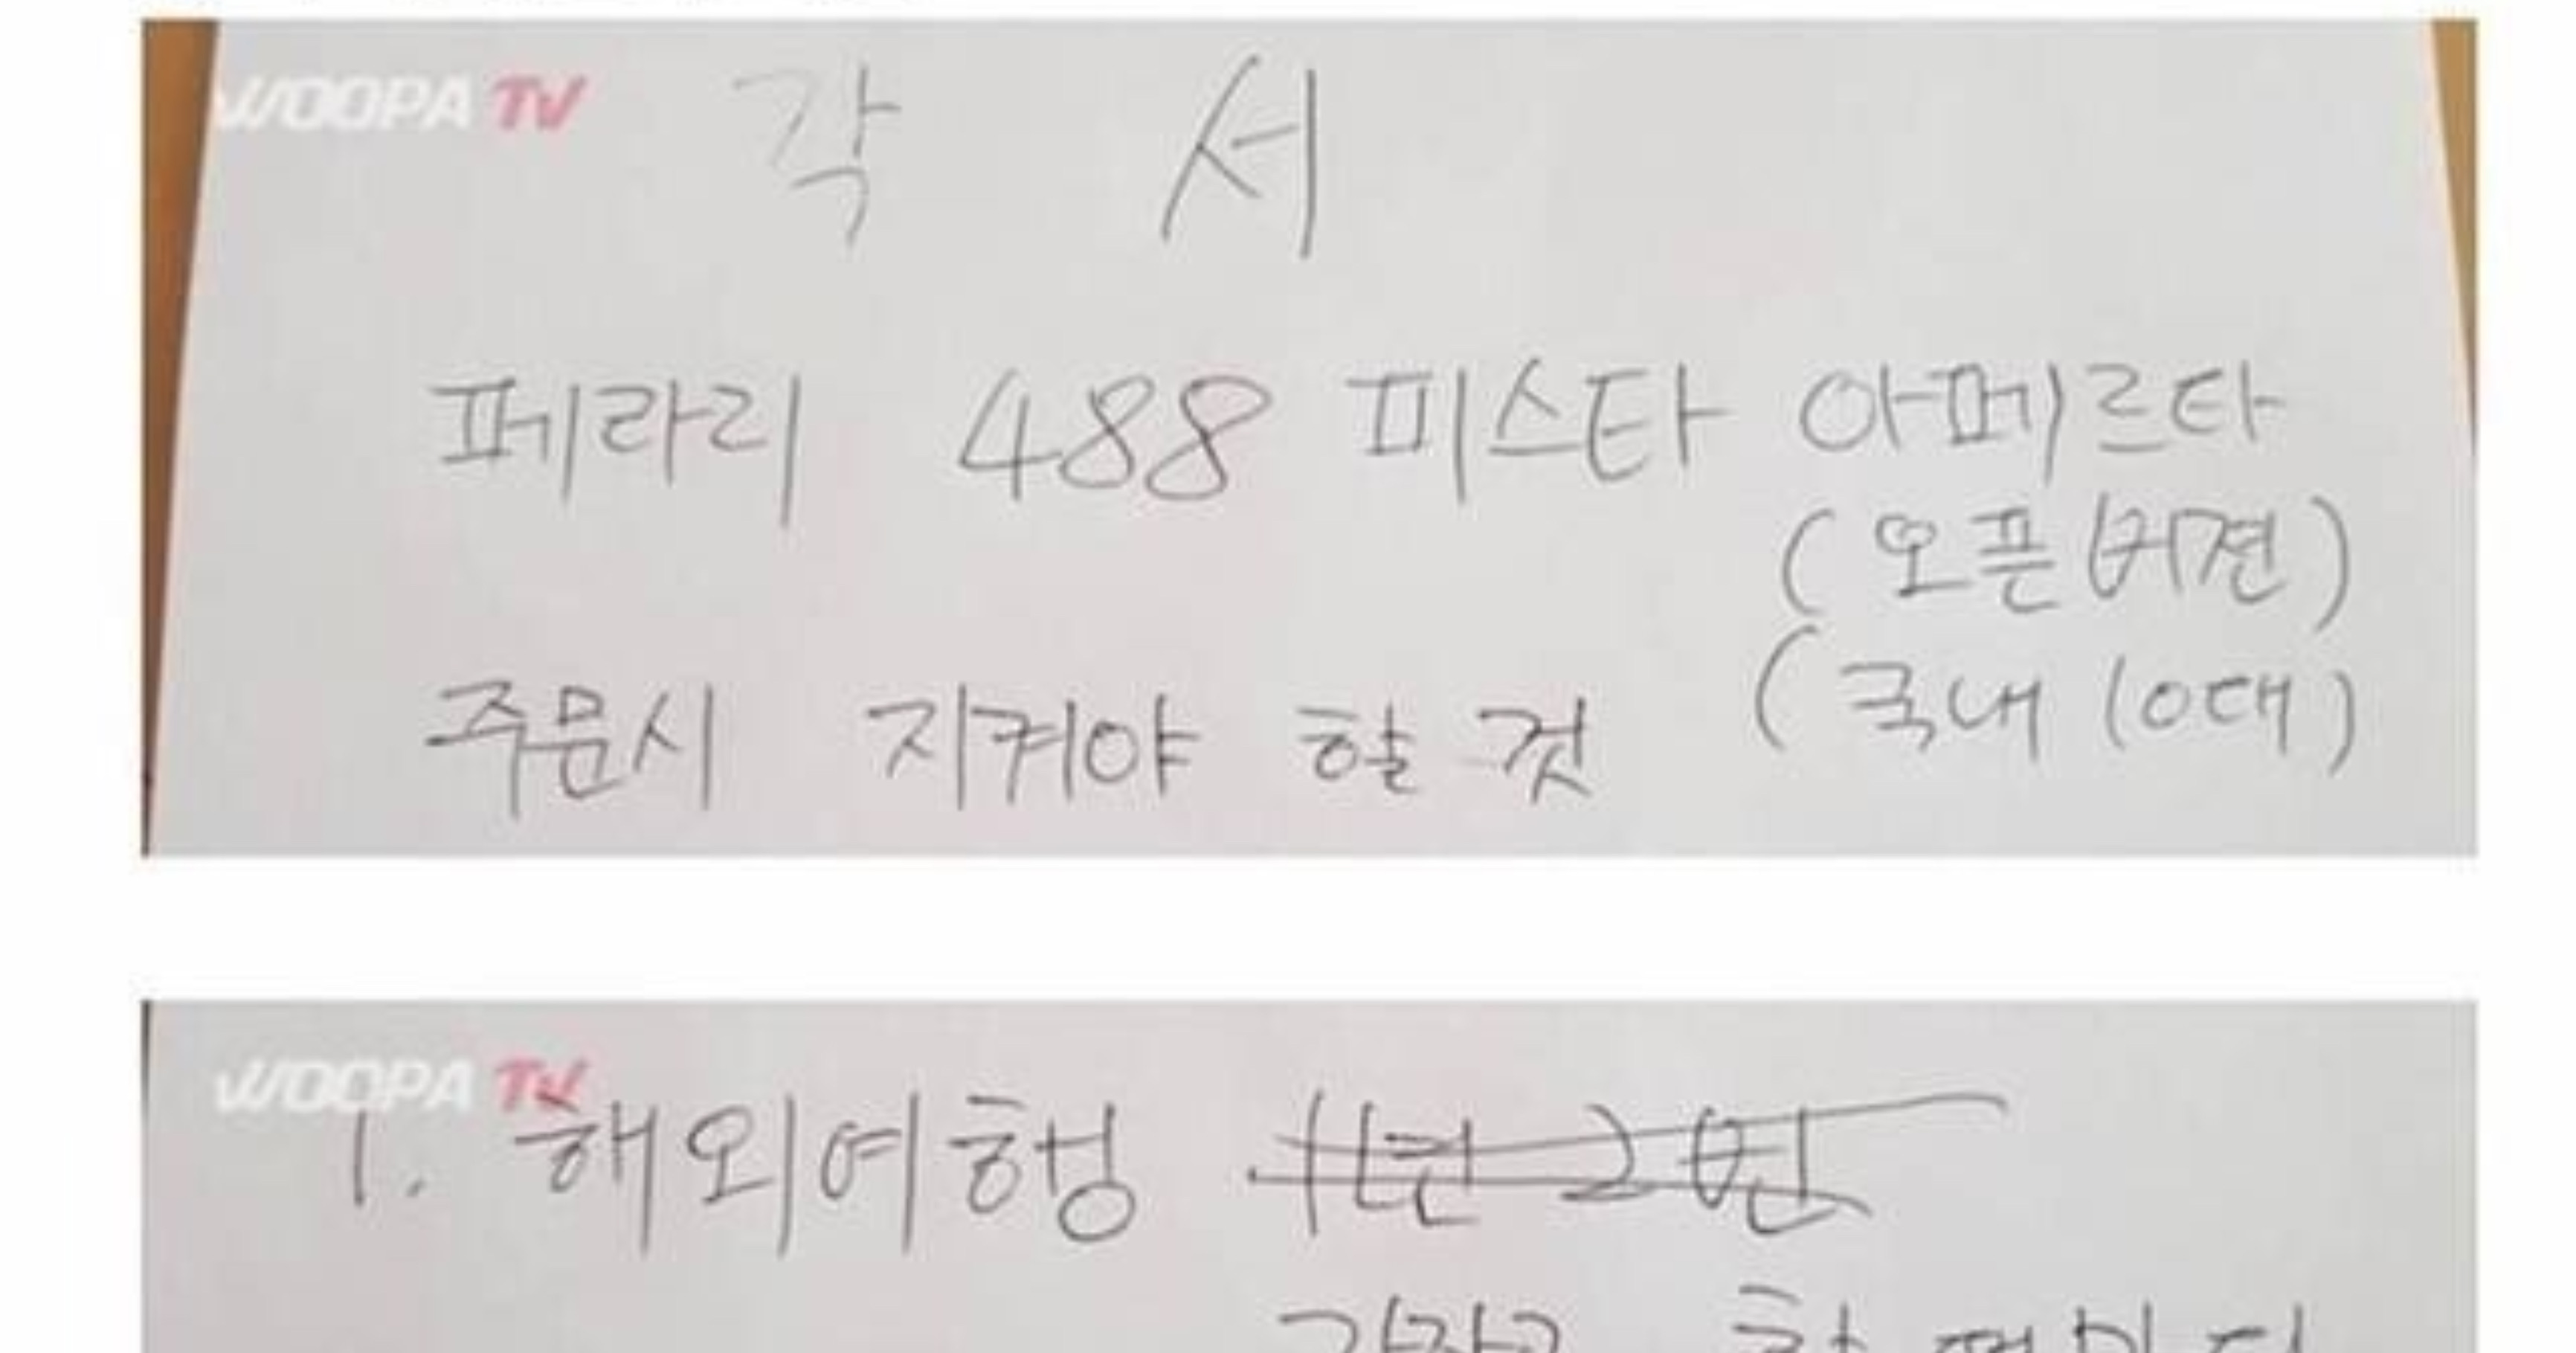 WOOPA TV
각 서
페라리 488 피스타 아메르타
(오픈버젼)
(국내 10대)
주문시 지켜야 할 것
WOOPA TV
1. 해외여행 1년 2번
가자고 할 때마다